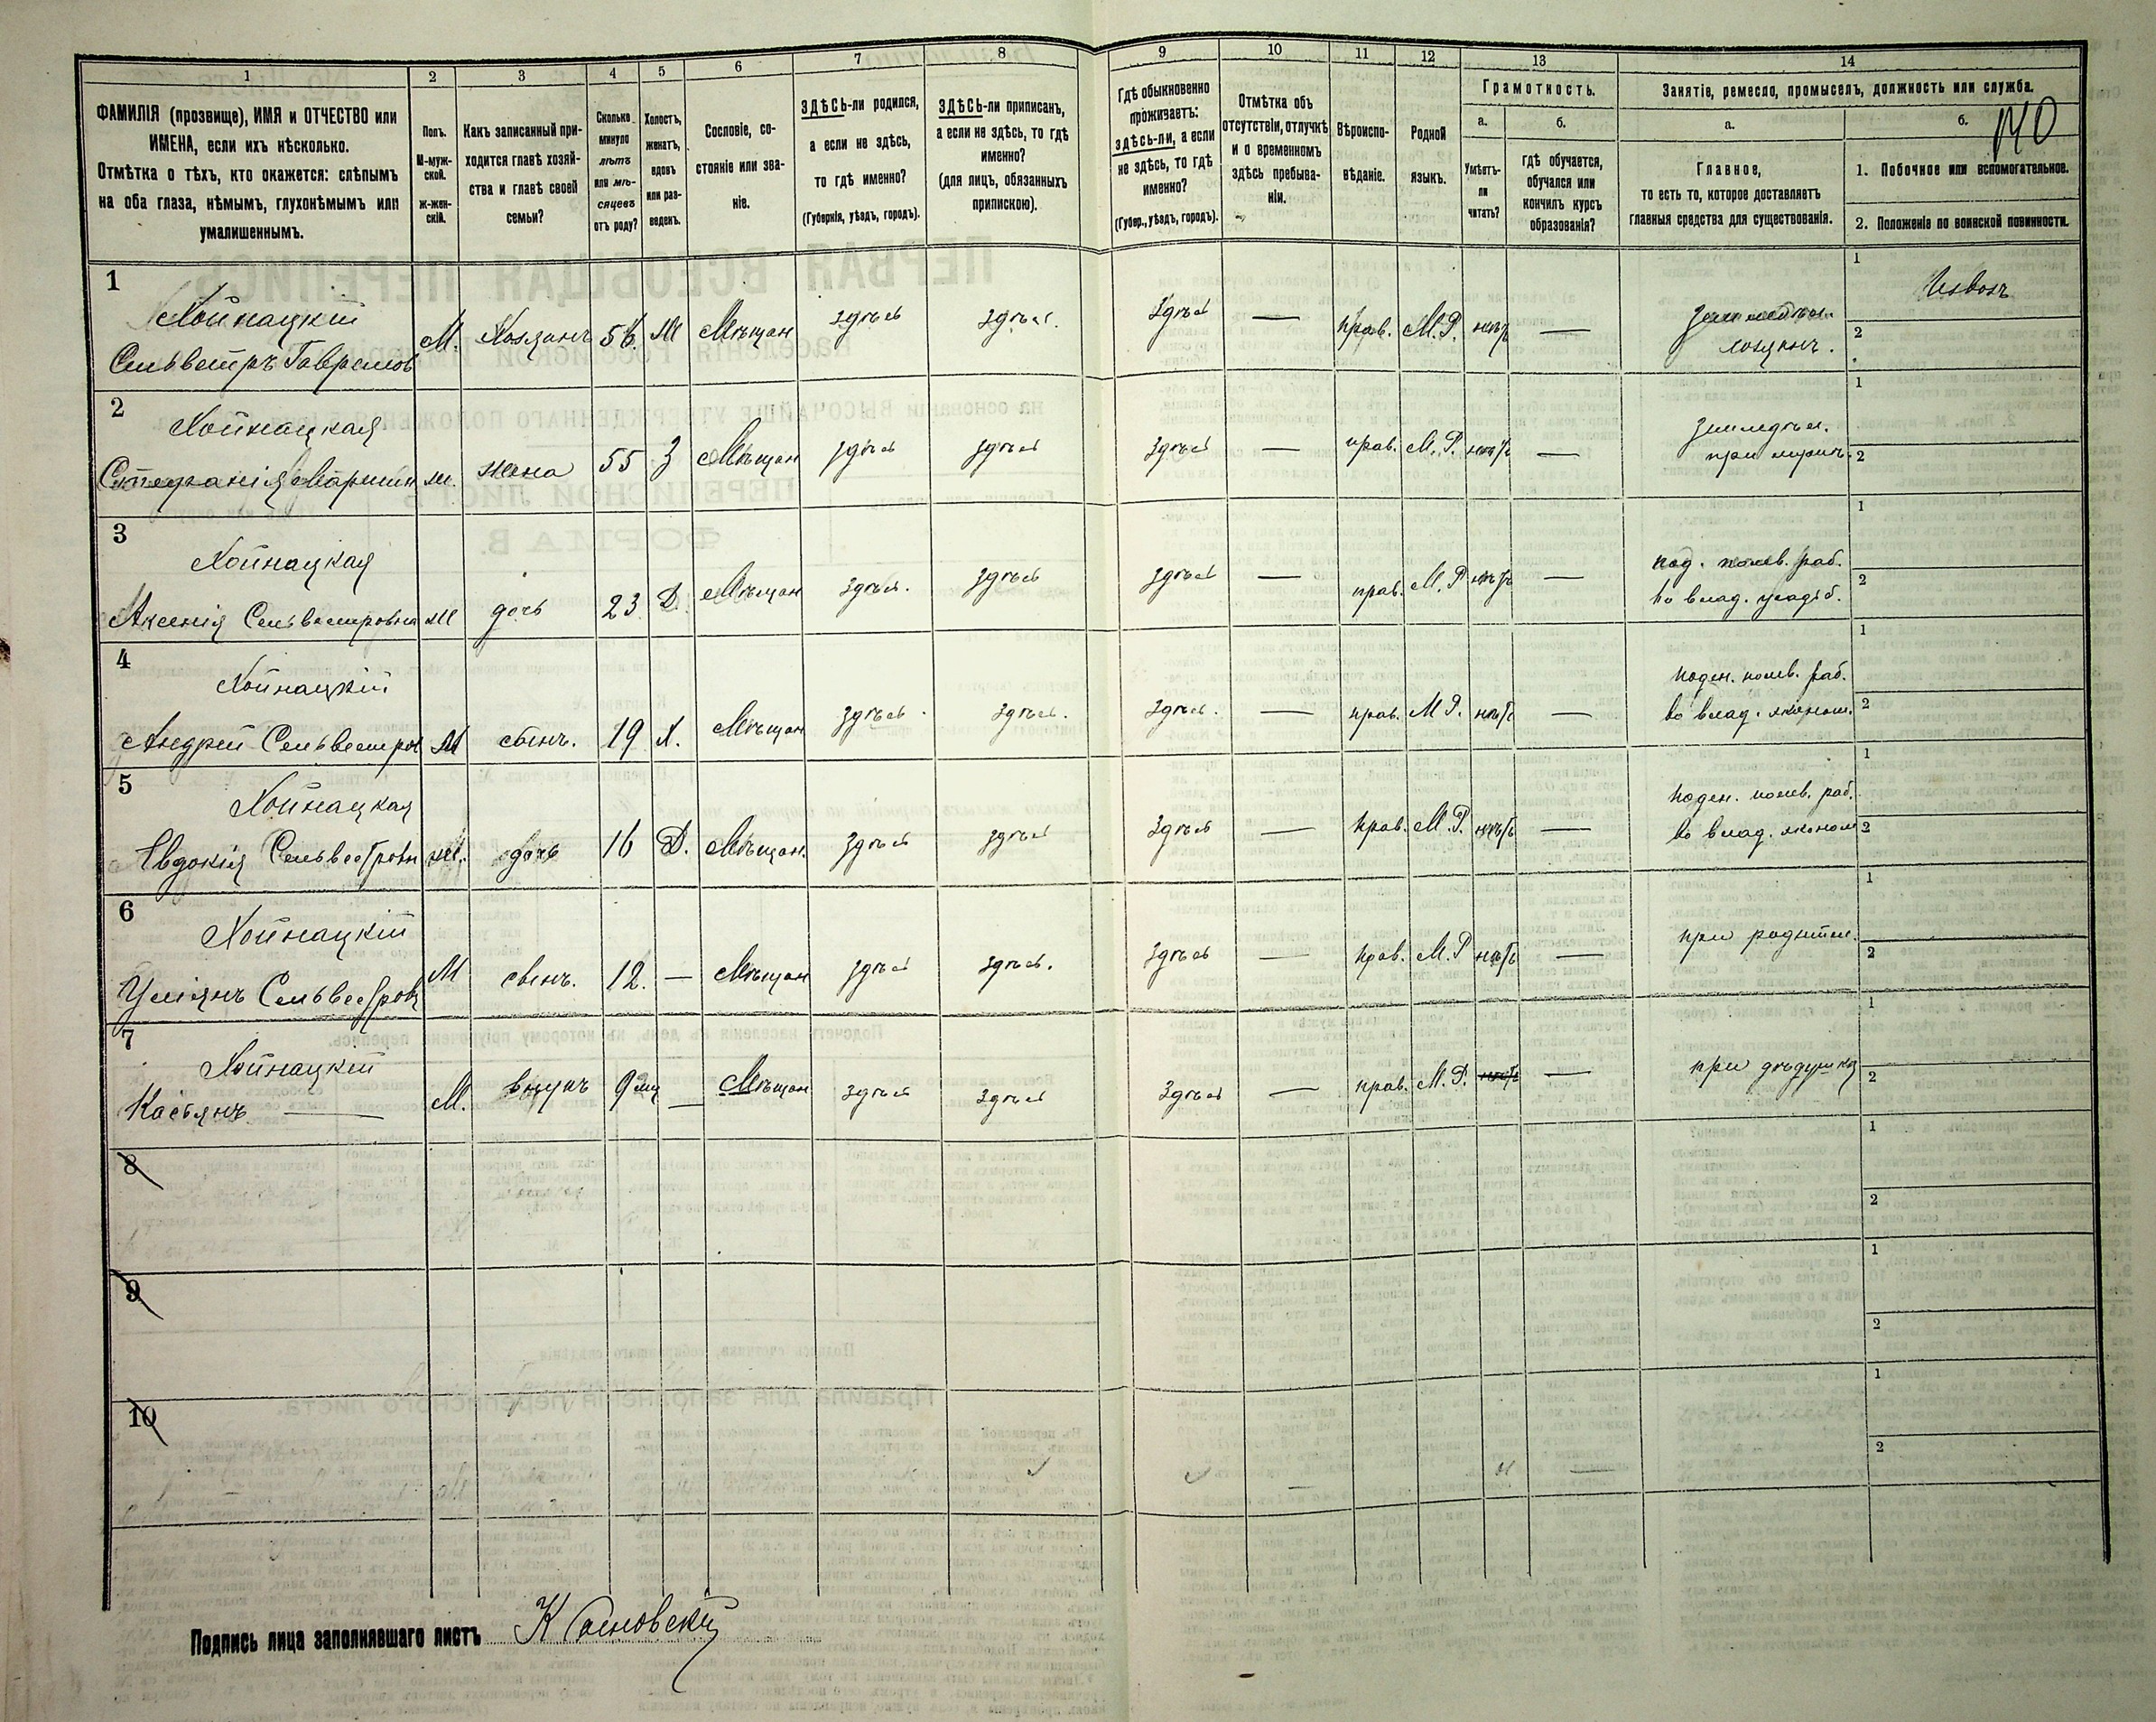 1 2 3 4 5 6 7 8 9 10 11 12 13 14
ФАМИЛІЯ (прозвище), ИМЯ и ОТЧЕСТВО или
ИМЕНА, если ихъ нѣсколько.
Отмѣтка о тѣхъ, кто окажется: слѣпымъ
на оба глаза, нѣмымъ, глухонѣмымъ или
умалишеннымъ.
Полъ.
М-муж-
ской.
ж-жен-
скій.
Какъ записанный при-
ходится главѣ хозяй-
ства и главѣ своей
семьи?
Сколько
минуло
лѣтъ
или мѣ-
сяцевъ
отъ роду?
Холостъ,
женатъ,
вдовъ
или раз-
веденъ.
Сословіе, со-
стояніе или зва-
ніе.
ЗДѢСЬ-ли родился,
а если не здѣсь,
то гдѣ именно?
(Губернія, уѣздъ, городъ).
ЗДѢСЬ-ли приписан,
а если не здѣсь, то гдѣ
именно?
(для лицъ, обязанныхъ
припискою).
Гдѣ обыкновенно
проживаетъ:
здѣсь-ли, а если
не здѣсь, то гдѣ
именно?
(Губер., уѣздъ, городъ).
Отмѣтка объ
отсутствіи, отлучкѣ
и о временномъ
здѣсь пребыва-
ніи.
Вѣроиспо-
вѣданіе.
Родной
языкъ.
Грамотность.
а.
Умѣетъ-
ли
читать?
б.
гдѣ обучается,
обучался или
кончилъ курсъ
образованія?
Занятіе, ремесло, промыселъ, должность или служба.
а.
Главное,
то есть то, которое доставляетъ
главныя средства для существованія.
б.
140
1. Побочное или вспомогательное.
2. Положеніе по воинской повинности.
1
Хойнацкій
Сильвестръ Гаврилов М. Хозяинъ 56 Мѣщан здѣсь здѣсь. здѣсь — прав. М.Р. нѣтъ —
хозяинъ.
1 Извозъ
2
2
Хойнацкая
Стефанія Мартин ж. жена 55 З Мѣщан здѣсь здѣсь здѣсь — прав. М.Р. нѣтъ —
земледѣл.
при мужѣ.
1
2
3
Хойнацкая
Аксенія Сильвестровна ж дочь 23 Д. Мѣщан здѣсь. здѣсь здѣсь — прав. М.Р. нѣтъ —
под. полев. раб.
во влад. усадьб.
1
2
4
Хойнацкій
Андрей Сильвестров М сынъ. 19 Х. Мѣщан здѣсь. здѣсь. здѣсь. — прав. М Р. нѣтъ —
поден. полев. раб.
во влад. эконом.
1
2
5
Хойнацкая
Евдокія Сильвестровн ж. дочь 16 Д. Мѣщан. здѣсь здѣсь здѣсь — прав. М.Р. нѣтъ —
поден. полев. раб.
во влад. эконом
1
2
6
Хойнацкій
Сильвестров М сынъ. 12. — Мѣщан здѣсь здѣсь. здѣсь — прав. М.Р нѣтъ —
при родител.
1
2
7
Хойнацкій
Касьянъ — М. внукъ 9 мц — Мѣщан здѣсь здѣсь здѣсь — прав. М.Р. нѣтъ —
при дѣдушкѣ
1
2
8
1
2
9
1
2
10
1
2
Подпись лица заполнявшаго листъ К Сосновскій